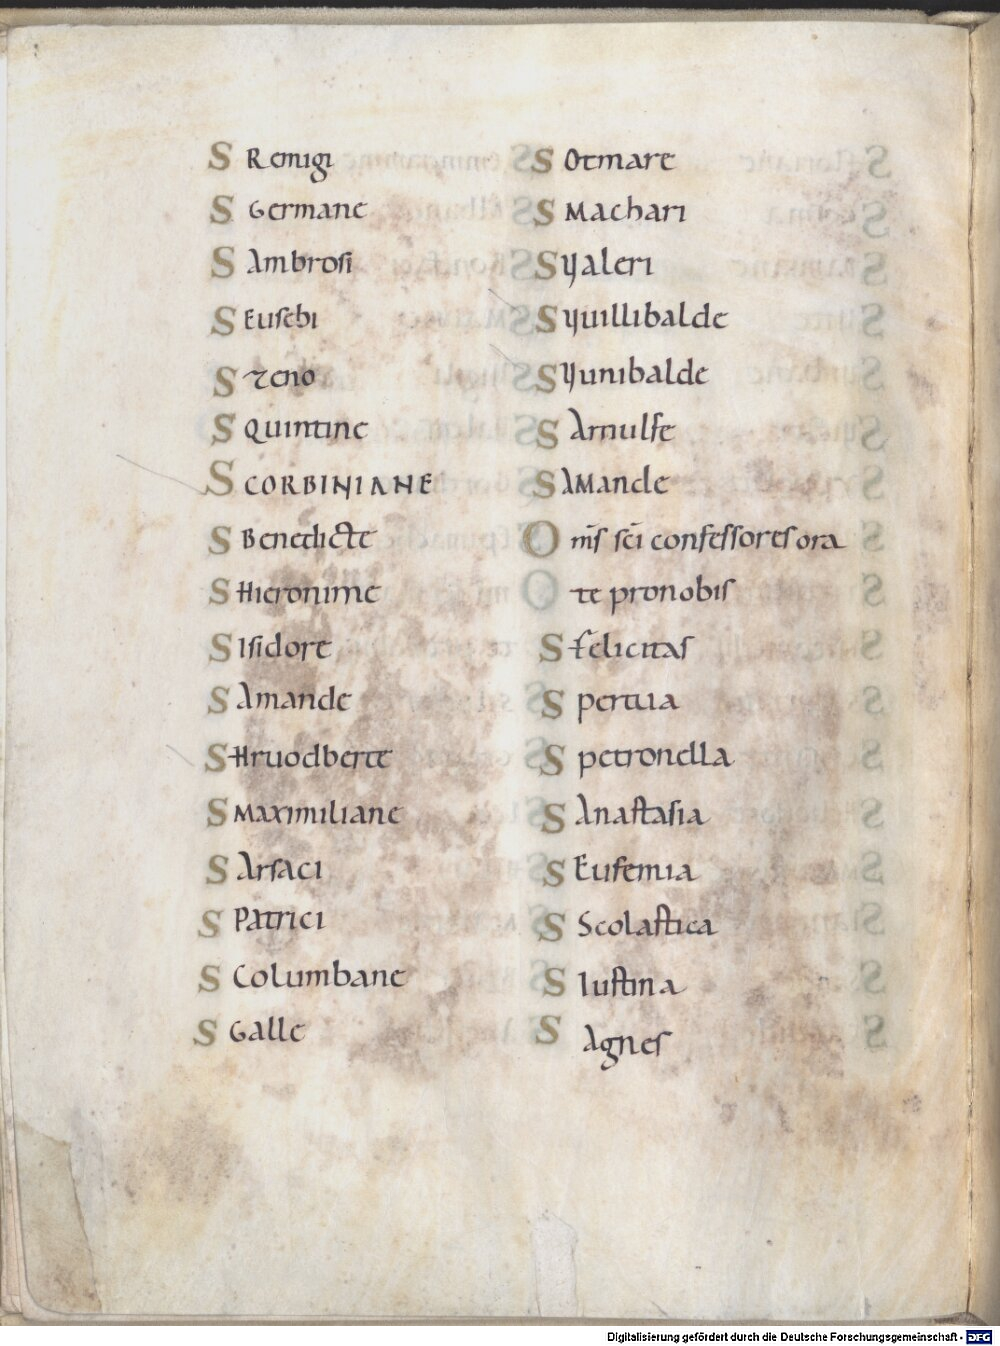 S Remigi
S Germane
S Ambrosi
S Eusebi
S Zeno
S Quintine
S CORBINIANE
S Benedicte
S Hieronime
S Isidore
S Amande
S Hruodberte
S Maximiliane
S Arsaci
S Patrici
S Columbane
S Galle
S Otmare
S Machari
S Ualeri
S Uuillibalde
S Uunibalde
S Arnulfe
S Amande
O mīs scī confessores ora
te pro nobis
S felicitas
S perpetua
S petronella
S Anastasia
S Eufemia
S Scolastica
S Iustina
S Agnes
Digitalisierung gefördert durch die Deutsche Forschungsgemeinschaft - DFG